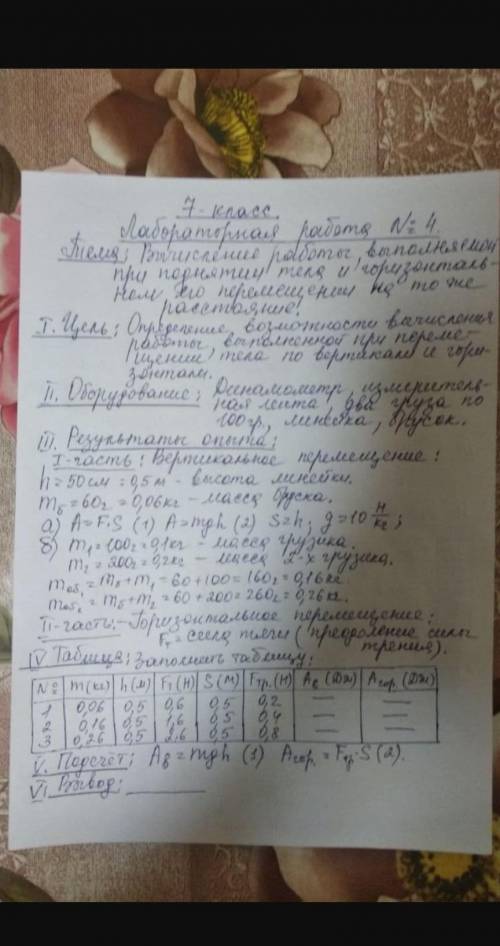 7-класс.
Лабораторная работа №4.
Тема: Вычисление работы, выполняемой
при поднятии тела и горизонталь-
ном его перемещении на то же
расстояние.
I. Цель: Определение возможности вычисления
работы, выполненной при переме-
щении тела по вертикали и гори-
зонтали.
II. Оборудование: Динамометр, измеритель-
ная лента, два груза по
100гр, линейка, брусок.
III. Результаты опыта:
I-часть: Вертикальное перемещение:
h=50см=0,5м- высота линейки.
mб=60г=0,06кг-масса бруска.
а) A=F·S (1) A=mgh (2) S=h; g=10 Н/кг;
б) m1=100г=0,1кг-масса грузика.
m2=200г=0,2кг-масса 2-х грузика.
mоб1=mб+m1=60+100=160г=0,16кг
mоб2=mб+m2=60+200=260г=0,26кг.
II-часть:-Горизонтальное перемещение:
Fт=сила тяги (преодоление силы
трения).
IV Таблица: Заполнить таблицу:
№ m(кг) h(м) Fт(Н) S(м) Fтр.(Н) Aв(Дж) Aгор.(Дж)
1 0,06 0,5 0,6 0,5 0,2 — —
2 0,16 0,5 1,6 0,5 0,4 — —
3 0,26 0,5 2,6 0,5 0,8 — —
V. Подсчёт: Aв=mgh (1) Aгор.=Fтр·S(2).
VI Вывод: